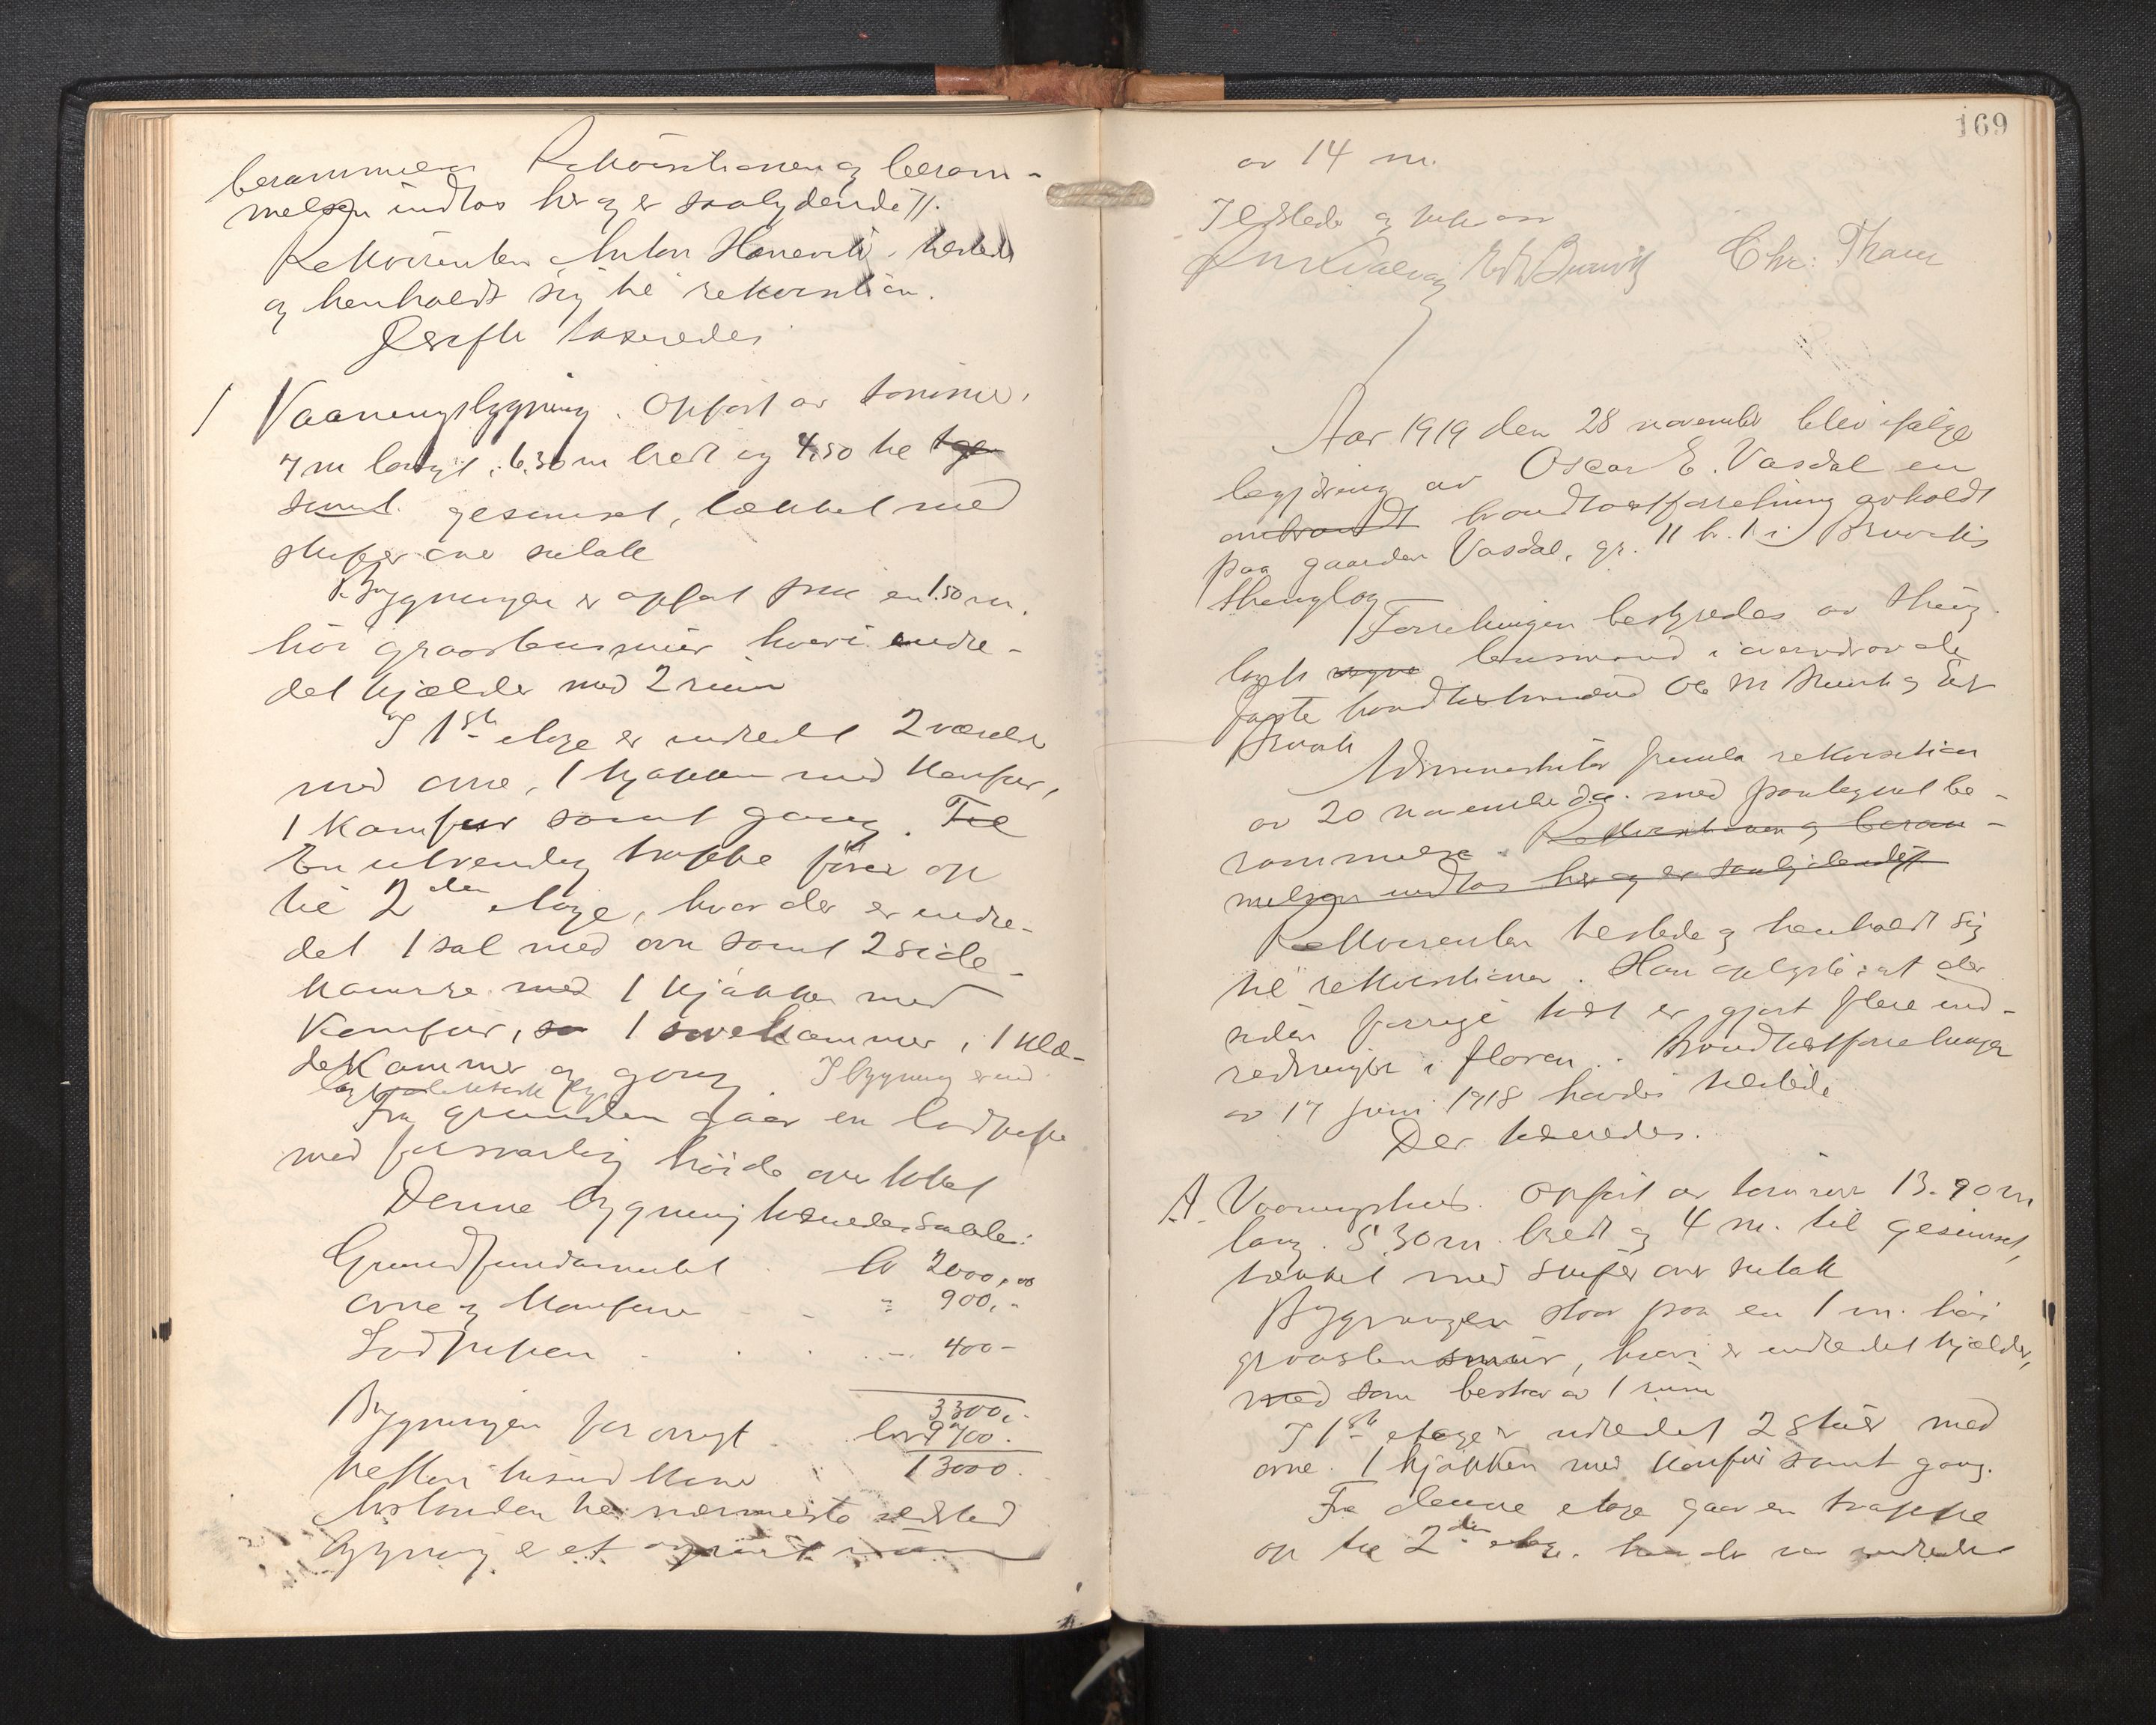 berammelse. Rekvisitionen og beram-
melsen indtas her og er saalydende //.
Rekvirenten Anton tilstede
og henholdt sig til rekvisition.
Derefter taxeredes
1 Vaaningsbygning. Opført av tømmer,
7 m langt, 6.30 m bredt og 4.50 til
gesimset, tækket med
skifer over sutak
Bygningen er opført paa en 1.50 m.
høi graastensmur hvori indre-
det kjælder med 2 rum
I 1ste etage er indredet 2 værelser
med ovne, 1 kjøkken med komfur,
1 kammer samt gang. Til
En utvendig trappe fører op
til 2den etage, hvor der er indre-
det 1 sal med ovn samt 2 side-
kamre med 1 kjøkken med
komfur, sa 1 sovekammer, 1 klæ-
dekammer og gang I bygning er ind
lagt elektrisk lys
Fra grunden gaar en lodpipe
med forsvarlig høide over taket
Denne bygning taxeredes saaledes:
Grundfundamentet kr 2000,00
ovne og komfur - - " 900,-
Lodpipen - . . . - 400-
3300,-
Bygningen forøvrigt . kr 9700.
tretten tusind kroner 13000.
Avstanden til nærmeste ildsted
bygning er et
169
av 14 m.
Oplæst og vedtat
Chr. Tham
Aar 1919 den 28 november blev ifølge
begjæring av Oscar E. Vasdal en
omtaxt brandtaxtforretning avholdt
paa gaarden Vasdal, gr. 11 br. 1 i Bruviks
thinglag
Forretningen bestyredes av thing-
lagets lensmand i overvær av de
faste brandtaxtmænd Ole M Bruvik og Erik
Bruvik
Administrator fremla rekvisition
av 20 november d.a. med paategnet be-
rammelse. Rekvisitionen og beram-
melsen indtas her og er saalydende //
Rekvirenten tilstede og henholdt sig
til rekvisitionen. Han oplyste at der
siden forrige taxt er gjort flere ind-
redninger i floren. Brandtaxtforretningen
av 17 juni 1918 havdes tilstede
Der taxeredes.
A. Vaaningshus. Opført av tømmer 13.90 m
lang. 5.30 m. bredt og 4 m. til gesimset,
tækket med skifer over sutak
Bygningen staar paa en 1 m. høi
graastensmur, hvori er indredet kjælder,
med som bestaar av 1 rum
I 1ste etage er indredet 2 stuer med
ovne. 1 kjøkken med komfur samt gang.
Fra denne etage gaar en trappe
op til 2den etage. hvor der var indredet